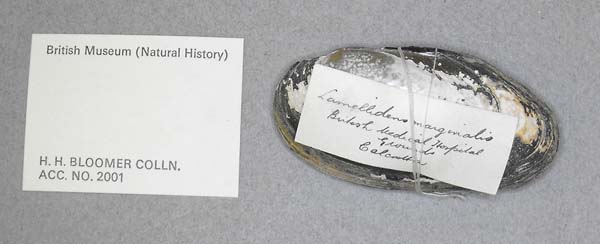 British Museum (Natural History)
H. H. BLOOMER COLLN.
ACC. NO. 2001
Lamellidens marginalis
British Medical Hospital
Grounds
Calcutta